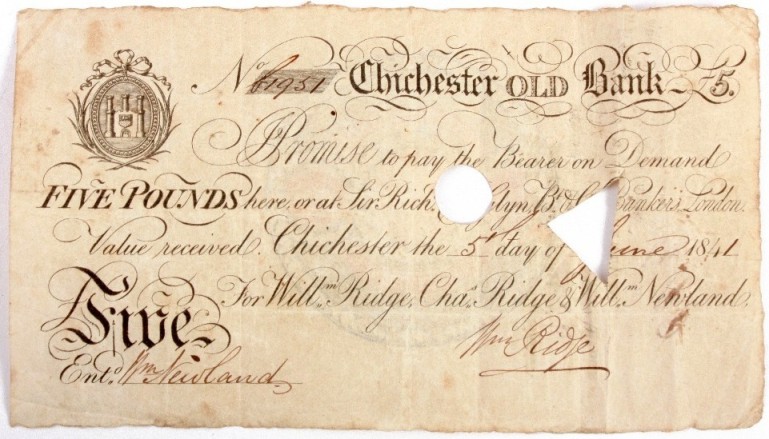 No. 61951 Chichester OLD Bank £5.
I Promise to pay the Bearer on Demand
FIVE POUNDS here, or at Sir Rich. Glyn, Bt. & Bankers London.
Value received. Chichester the 5 day of June 1841
For Willm. Ridge, Chas. Ridge & Willm. Newland.
Five
Wm Ridge
Entd. Wm Newland